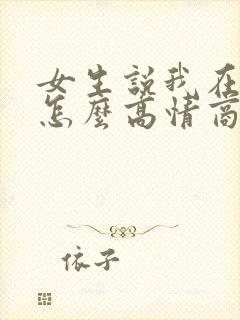 女生説我在
怎麼高情商
依子